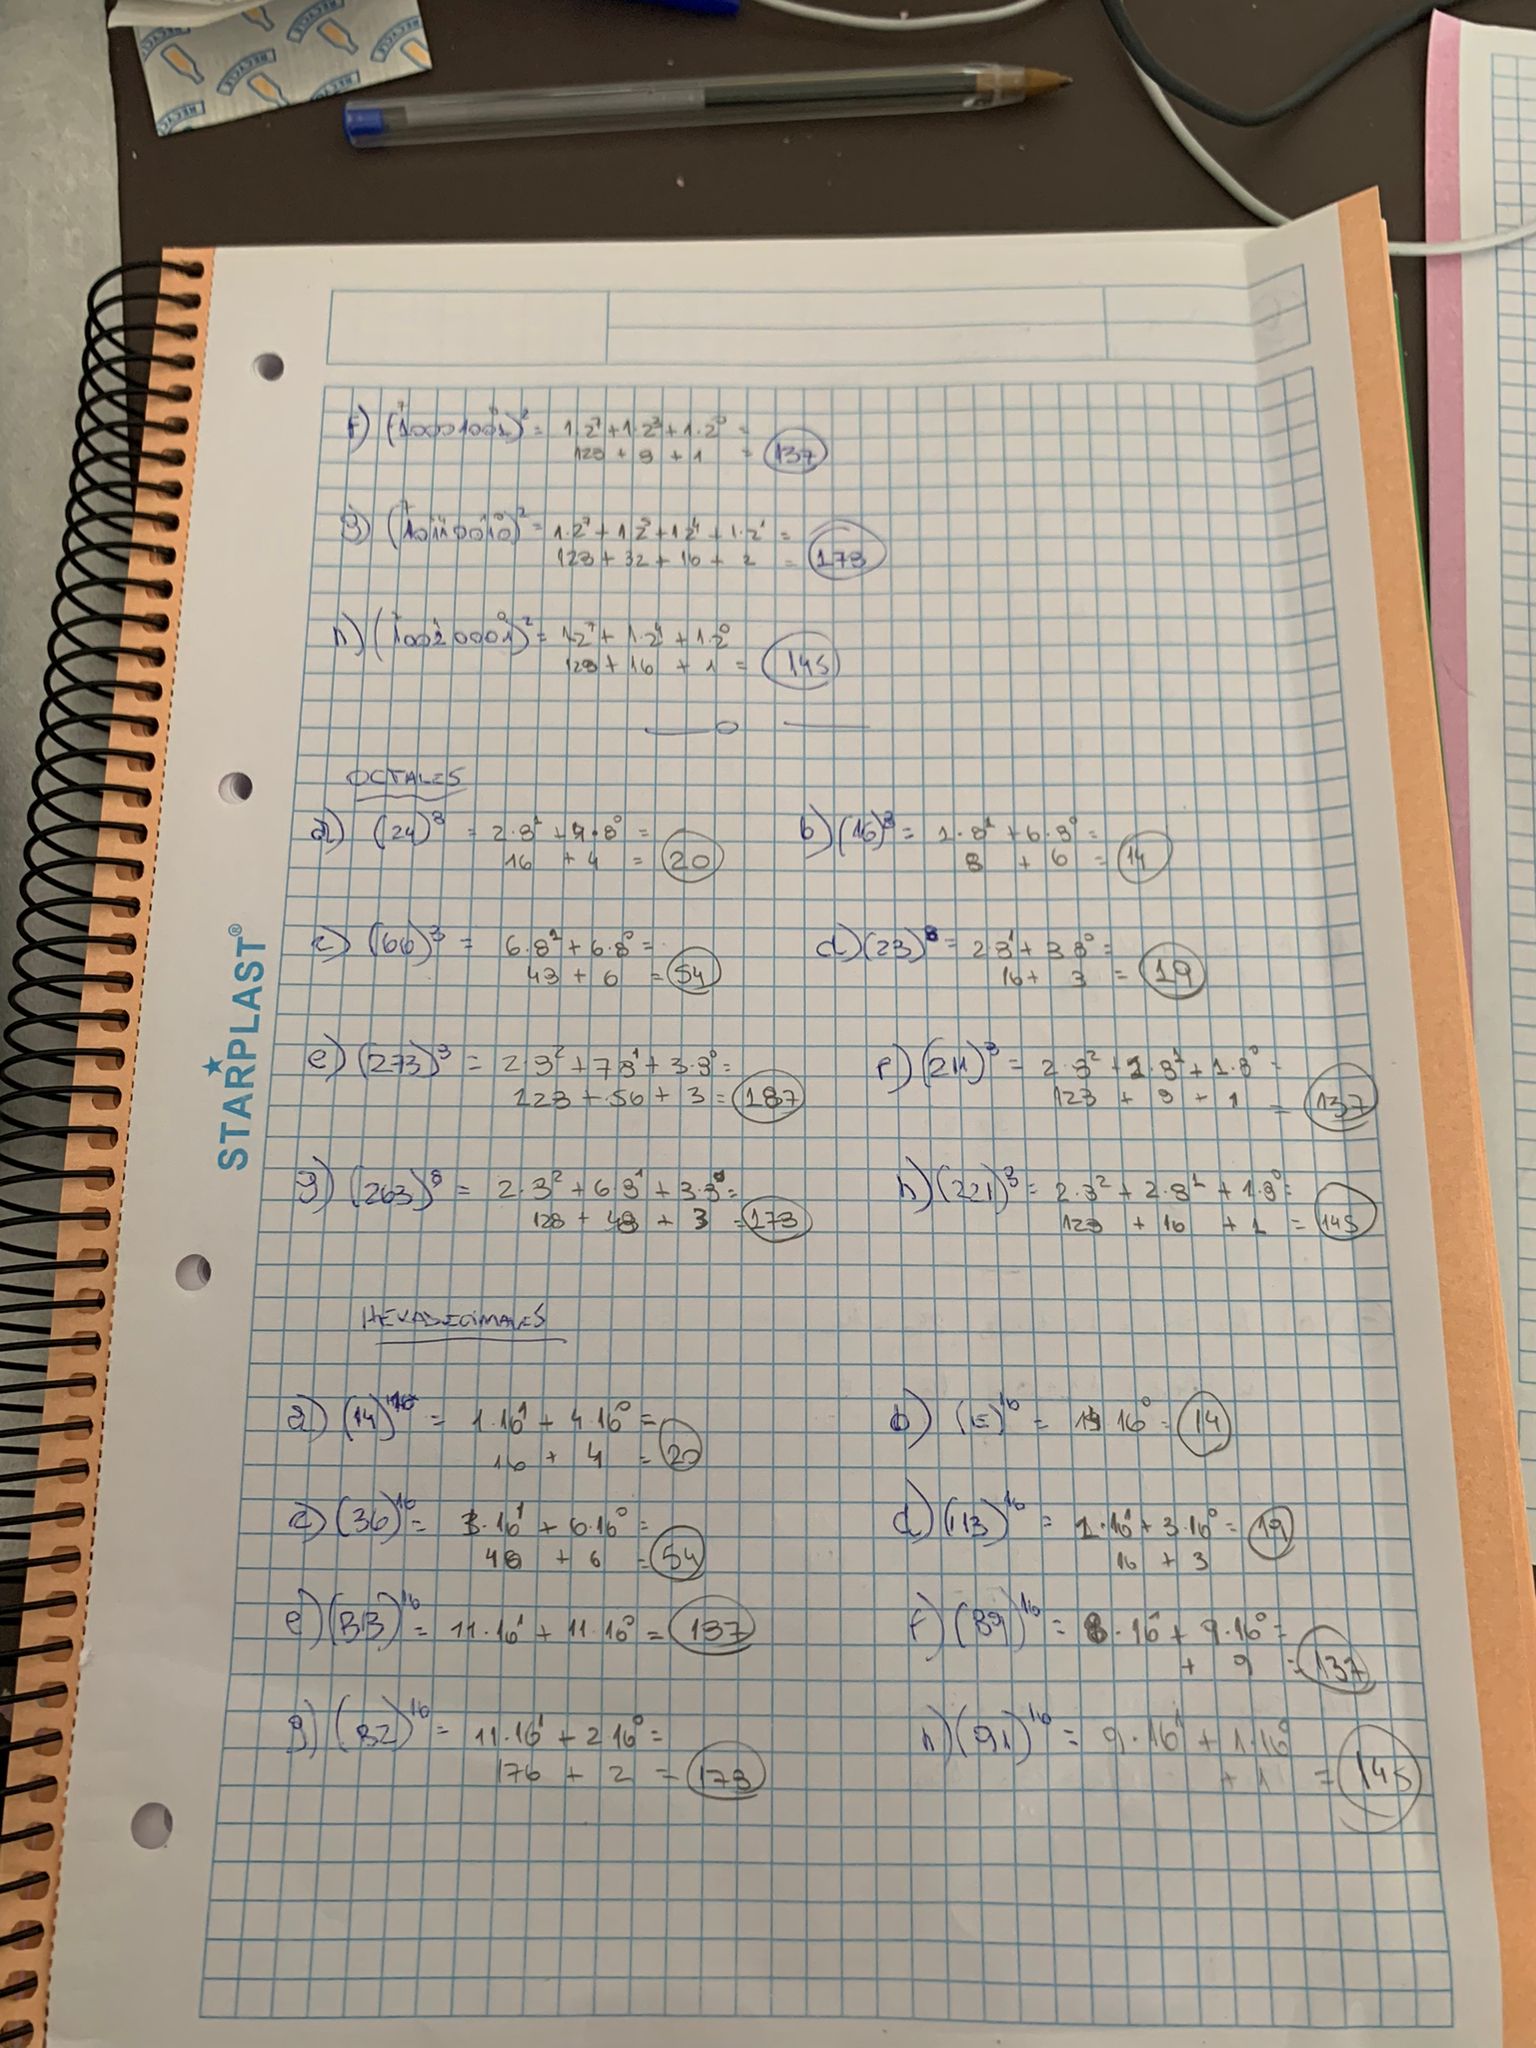 RECYCLE
RECYCLE
RECYCLE
RECYCLE
RECYCLE
f) (10001001)² = 1·2⁷ + 1·2³ + 1·2⁰ =
128 + 8 + 1 = 137
g) (10110010)² = 1·2⁷ + 1 2⁵ + 1 2⁴ + 1·2¹ =
128 + 32 + 16 + 2 = 178
h) (10010001)² = 1 2⁷ + 1·2⁴ + 1·2⁰
128 + 16 + 1 = 145
OCTALES
a) (24)⁸ = 2·8¹ + 4·8⁰ =
16 + 4 = 20
b) (16)⁸ = 1·8¹ + 6·8⁰ =
8 + 6 = 14
c) (66)⁸ = 6·8¹ + 6·8⁰ =
48 + 6 = 54
d) (23)⁸ = 2 8¹ + 3 8⁰ =
16 + 3 = 19
e) (273)⁸ = 2·8² + 7 8¹ + 3·8⁰ =
128 + 56 + 3 = 187
f) (211)⁸ = 2·8² + 1·8¹ + 1·8⁰ =
128 + 8 + 1 = 137
g) (263)⁸ = 2·8² + 6 8¹ + 3·8⁰ =
128 + 48 + 3 = 178
h) (221)⁸ = 2·8² + 2·8¹ + 1·8⁰ =
128 + 16 + 1 = 145
STARPLAST®
HEXADECIMALES
a) (14)¹⁶ = 1·16¹ + 4·16⁰ =
16 + 4 = 20
b) (E)¹⁶ = 14 16⁰ = 14
c) (36)¹⁶ = 3·16¹ + 6·16⁰ =
48 + 6 = 54
d) (113)¹⁶ = 1·16¹ + 3·16⁰ = 19
16 + 3
e) (BB)¹⁶ = 11·16¹ + 11·16⁰ = 187
f) (89)¹⁶ = 8·16¹ + 9·16⁰ =
+ 9 = 137
g) (B2)¹⁶ = 11·16¹ + 2·16⁰ =
176 + 2 = 178
h) (91)¹⁶ = 9·16¹ + 1·16⁰
+ 1 = 145